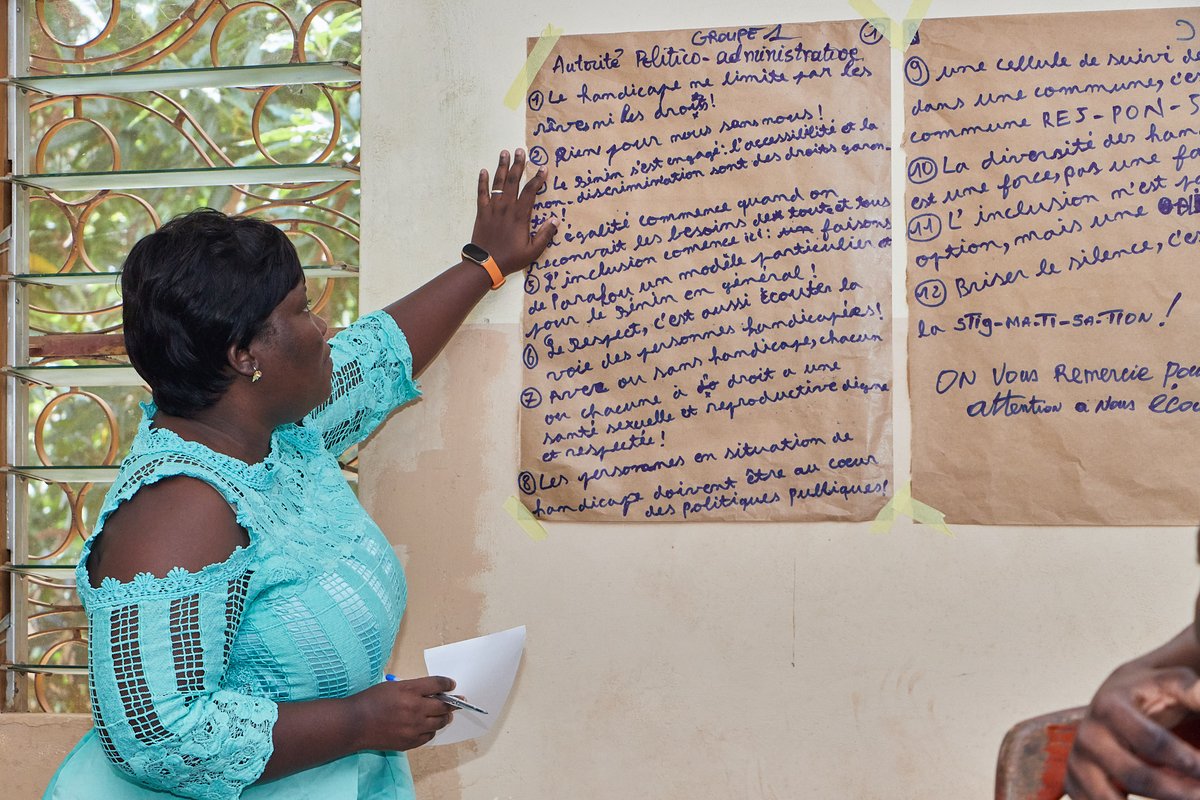 GROUPE 1
①
Autorité Politico-administrative
① Le handicape me limite par les
rêve, mi les droits !
② Rien pour nous sans nous !
Le Bénin s'est engagé : l'accessibilité et la
non-discrimination sont des droits garan-
tis !
L'égalité commence quand on
reconnait les besoins de toute et tous
⑤ L'inclusion commence ici : un faisons
de Parakou un modèle particulier et
pour le Bénin en général !
⑥ Le Respect, c'est aussi écouter la
voie des personnes handicapées !
⑦ Avec ou sans handicape, chacun
ou chacune à droit a une
santé sexuelle et reproductive digne
et respectée !
⑧ Les personnes en situation de
handicape doivent être au cœur
des politiques publiques !
⑨ une cellule de suivi de
dans une commune, c'es
commune RES-PON-S
⑩ La diversité des han
est une force, pas une fa
⑪ L'inclusion m'est pa
option, mais une
⑫ Briser le silence, c'es
la STIG-MA-TI-SA-TION !
ON Vous Remercie Pou
attention a Nous écou